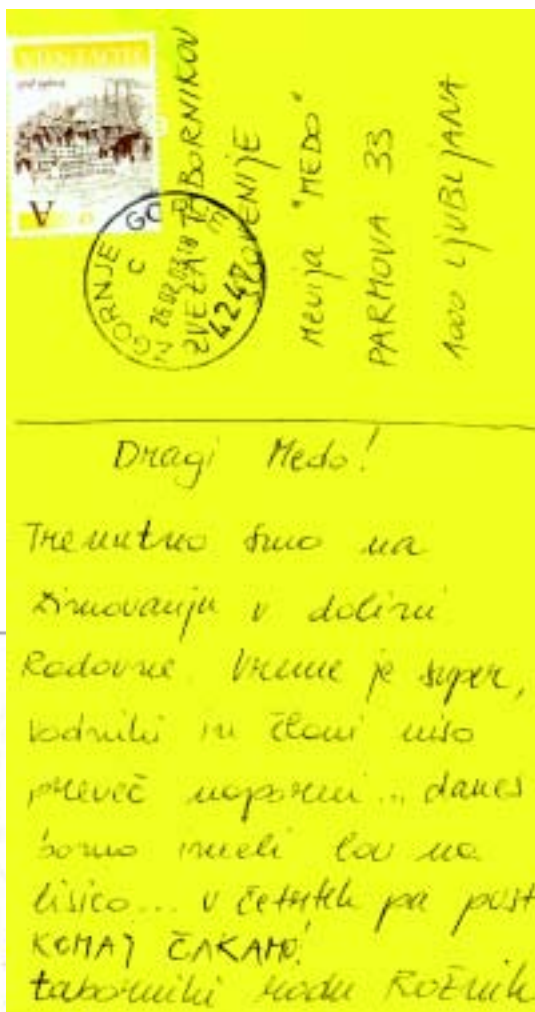 SLOVENIJA
A
ZGORNJE GO
C
26.02.03.18
4247
ZVEZA TABORNIKOV
SLOVENIJE
REVIJA "MEDO"
PARMOVA 33
1000 LJUBLJANA
Dragi Medo!
Trenutno smo na
zimovanju v dolini
Radovne. Vreme je super,
vodniki in člani niso
preveč naporni... danes
bomo imeli lov na
lisico... v četrtek pa pust
KOMAJ ČAKAMO!
taborniki rodu Rožnik